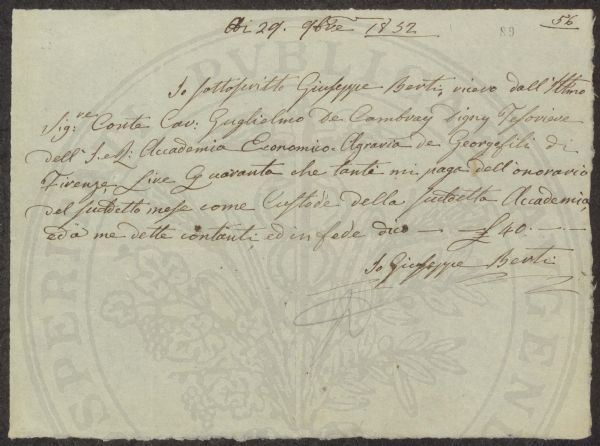 56
89
Adi 29. 9bre 1852
Io sottoscritto Giuseppe Berti, ricevo dall'Illmo
Sig.re Conte Cav: Guglielmo De Cambray Digny Tesoriere
dell' I. e R: Accademia Economico-Agraria de Georgofili di
Firenze, Lire Quaranta che tante mi paga dell'onorario
del suddetto mese come Custode della suddetta Accademia,
ed a me dette contanti, ed in fede dico — £ 40. —
Io Giuseppe Berti
PUBLICAE
PROSPERITATI
AUGENDAE